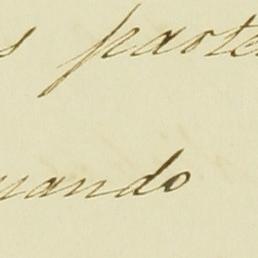 s parte
uando